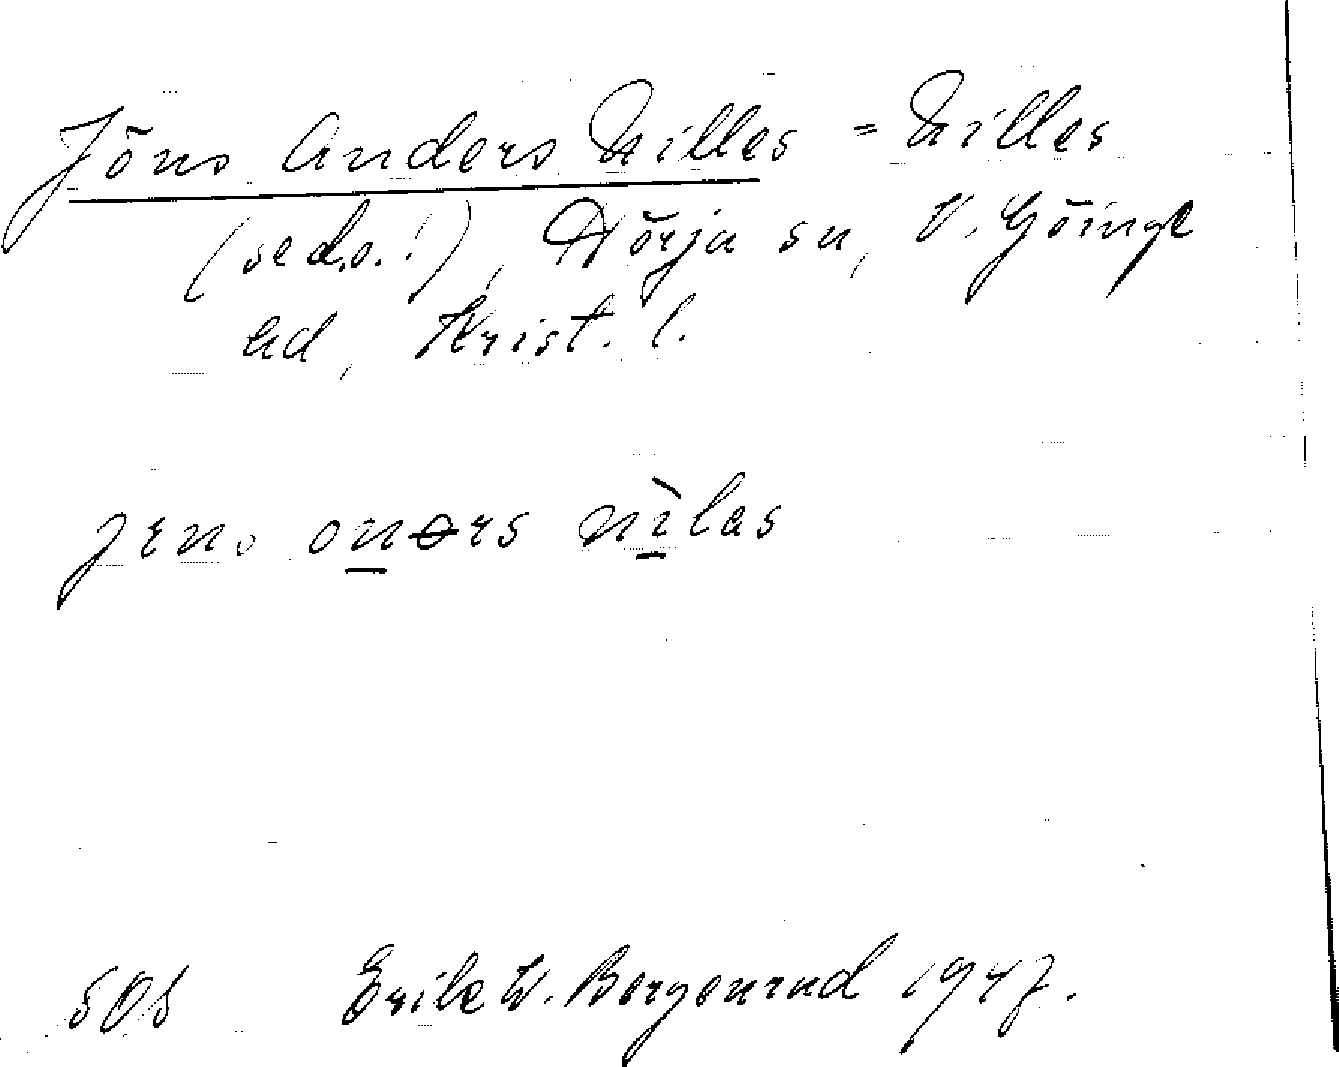 Jöns Anders Nilles = Nilles
(se d.o.!), Nörja sn, V. Göinge
hd, Krist. l.
jens onərs nìlas
sos Erik W. Bergenrud 1947.